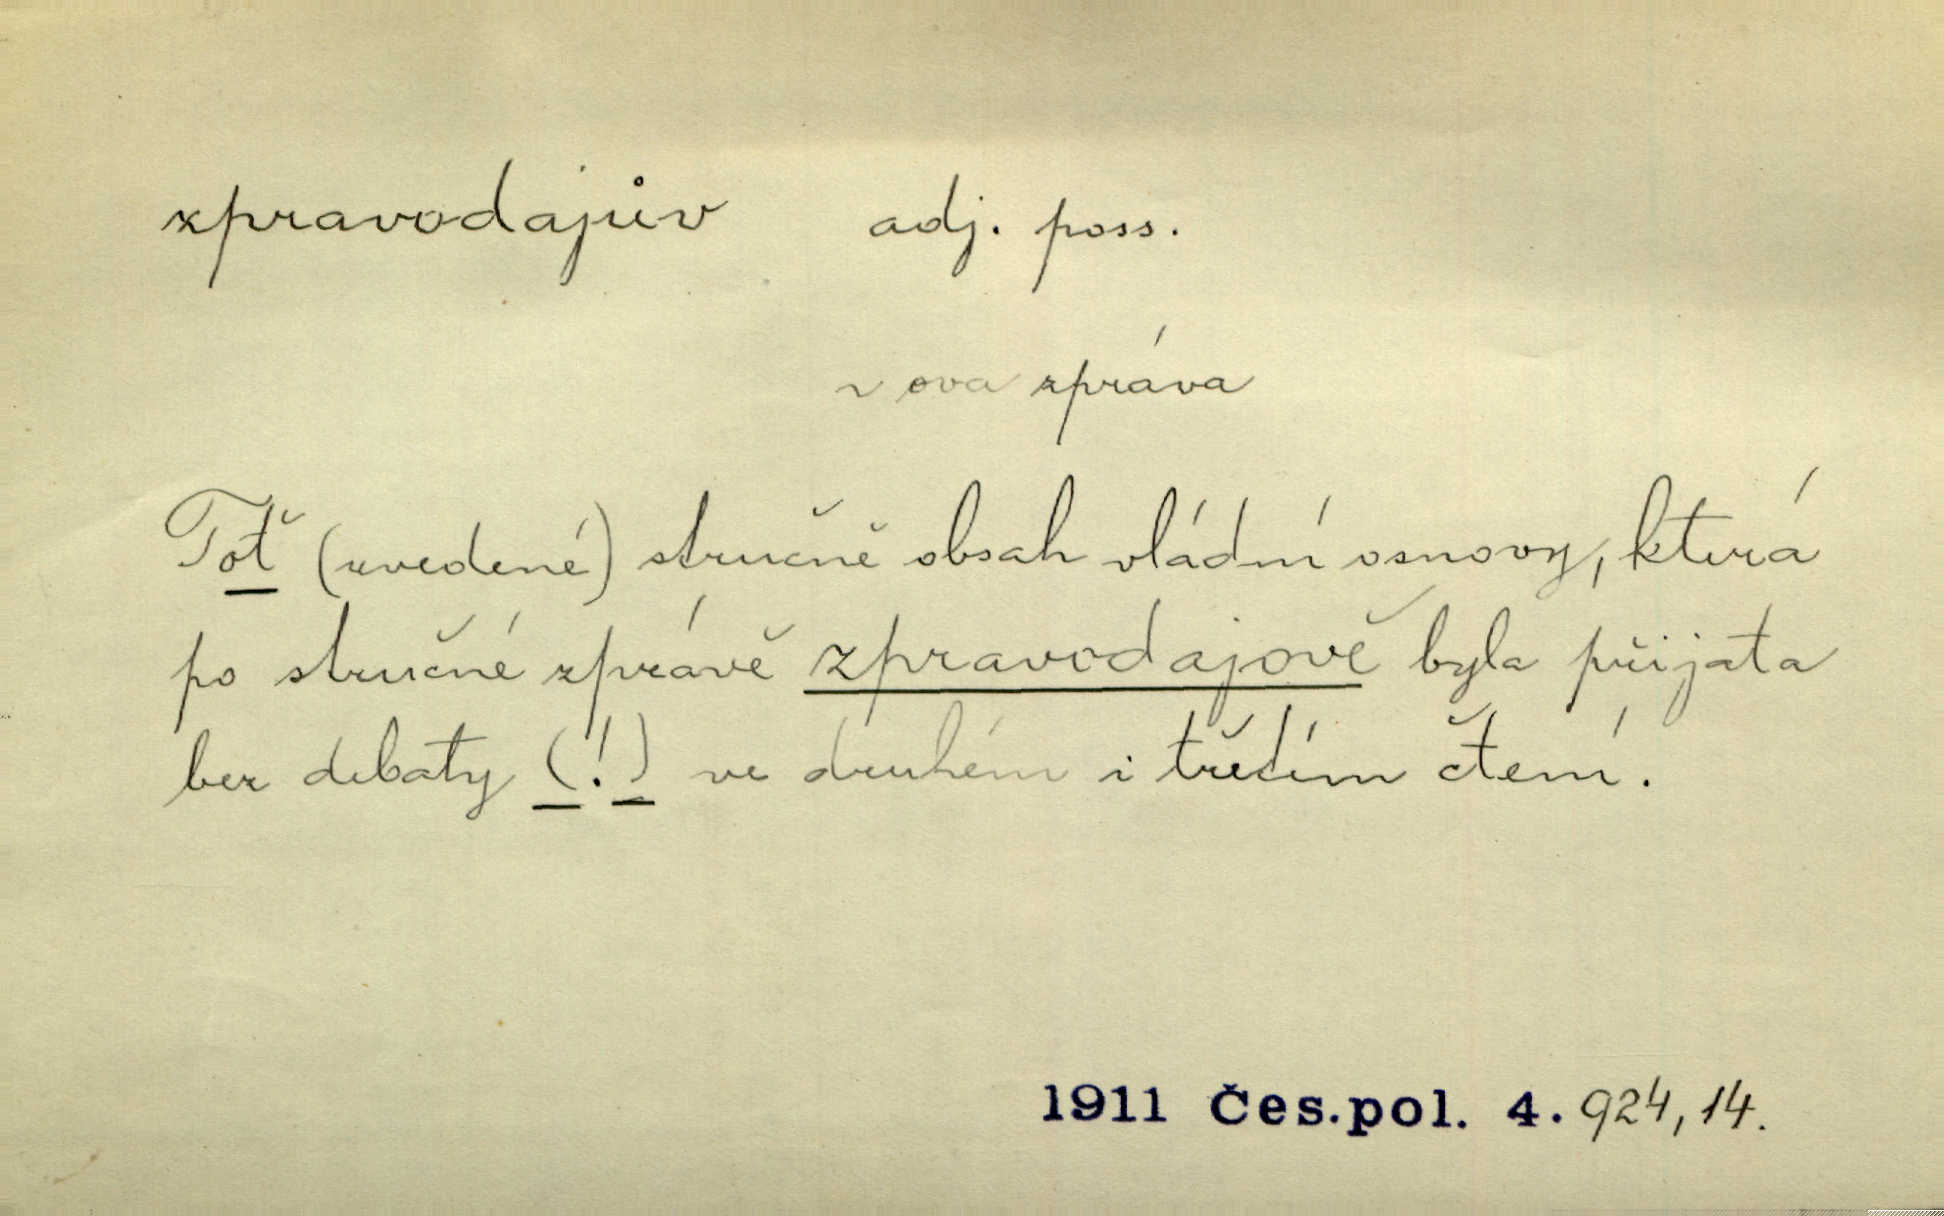 zpravodajův adj. poss.
~ ova zpráva
Toť (uvedené) stručně obsah vládní osnovy, která
po stručné zprávě zpravodajově byla přijata
bez debaty (!) ve druhém i třetím čtení.
1911 Čes.pol. 4. 924,14.